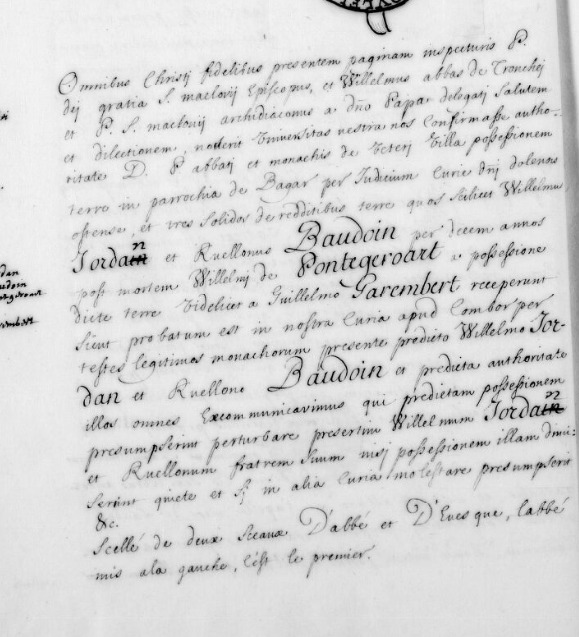 Omnibus Christi fidelibus presentem paginam inspecturis P.
dej gratia S. maclovij Episcopus, et Willelmus abbas de Tronchej
et P. S. maclovij archidiaconus a dño Papa delegatj salutem
et dilectionem, noverit Universitas vestra nos confirmasse autho-
ritate D. P abbatj et monachis de Veterj Villa possessionem
terre in parrochia de Bagar per Judicium Curie dnj dolensis
ostense, et tres solidos de redditibus terre quos scilicet Willelmus
Jordan et Ruellonus Baudoin per decem annos
post mortem Willelmj de Pontegeroart a possessione
dicte terre videlicet a Guillelmo Garembert receperunt
sicut probatum est in nostra Curia apud Combor per
testes legitimos monachorum presente predicto Willelmo Jor-
dan et Ruellono Baudoin et predicta authoritate
illos omnes Excommunicavimus qui predictam possessionem
presumpserint perturbare presertim Willelmum Jordan
et Ruellonum fratrem suum nisj possessionem illam dimi:
serint quiete et sj in alia Curia molestare presumpserit
&c.
Scellé de deux Sceaux D'abbé et D'Evesque, l'abbé
mis a la gauche, c'est le premier.